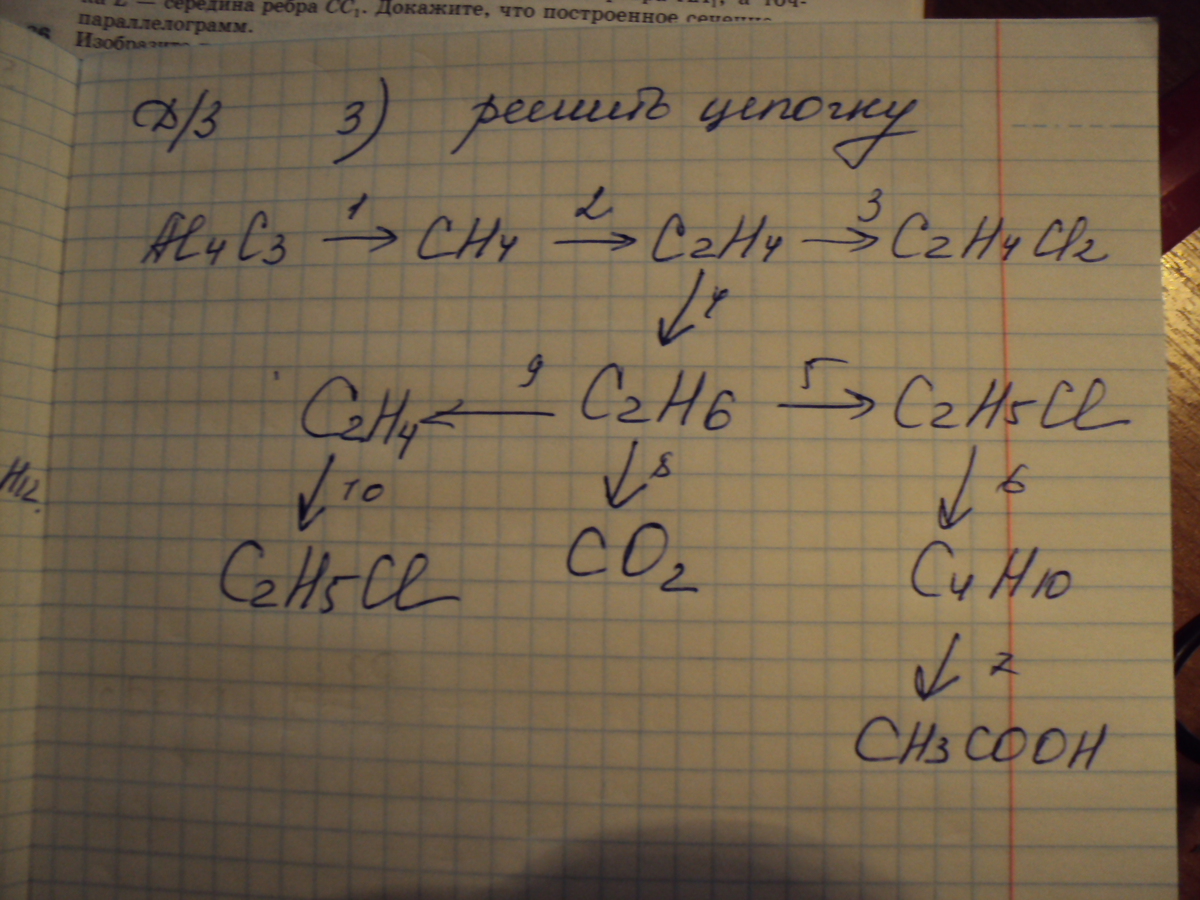 на E — середина ребра CC₁. Докажите, что построенное сечение
параллелограмм.
26 Изобразите
Д/З 3) решить цепочку
Al4C3 →1 CH4 →2 C2H4 →3 C2H4Cl2
↓4
C2H4 ←9 C2H6 →5 C2H5Cl
↓10 ↓8 ↓6
H12.
C2H5Cl CO2 C4H10
↓7
CH3COOH